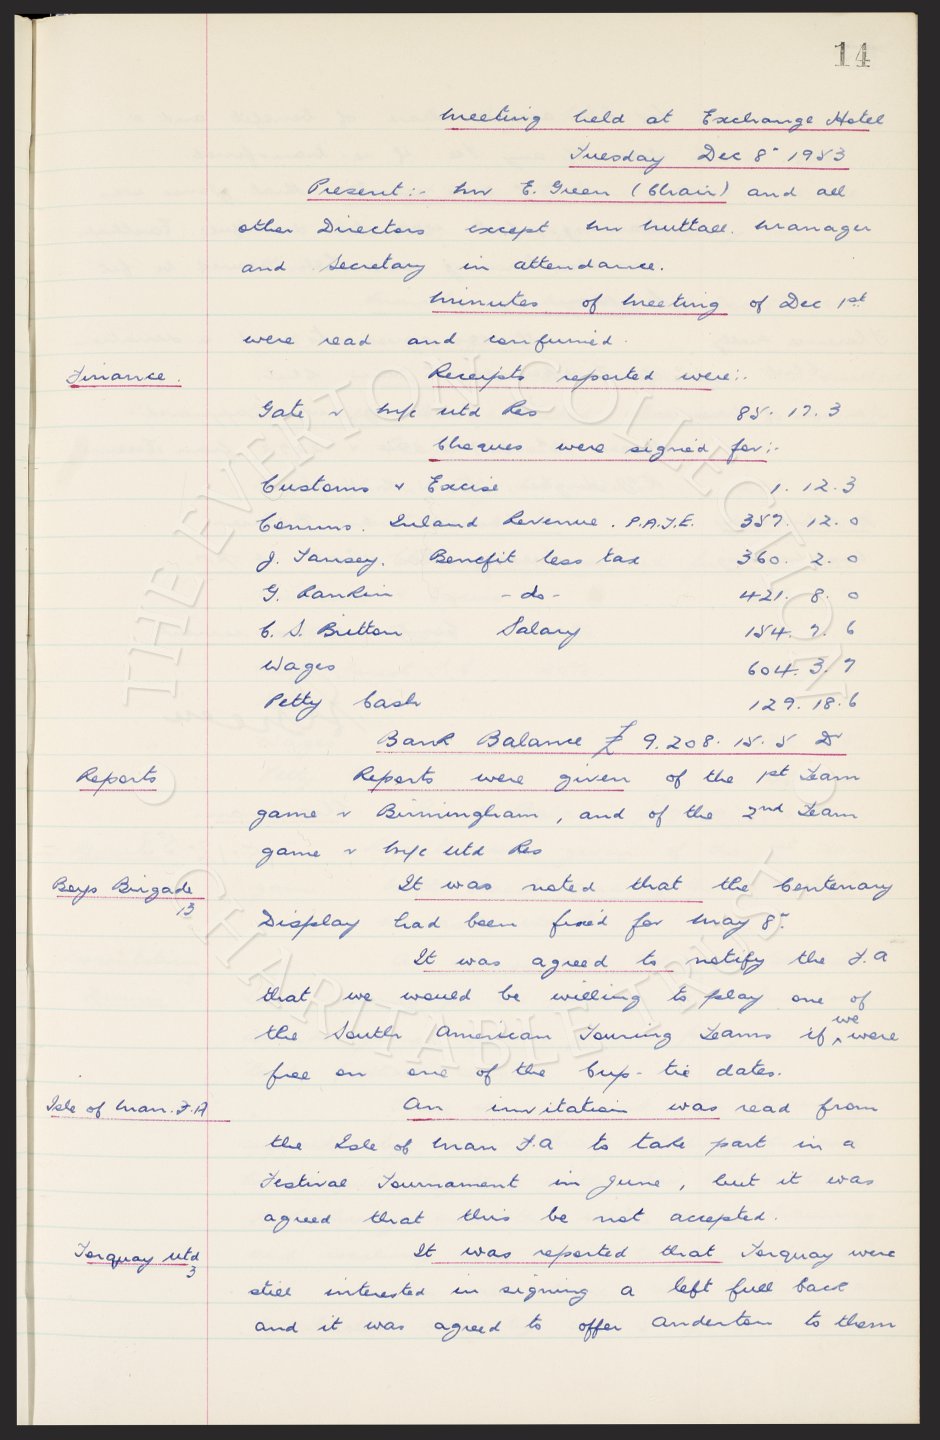 14
Meeting held at Exchange Hotel
Tuesday Dec 8" 1953
Present:- Mr E. Green (Chair) and all
other Directors except Mr Nuttall. Manager
and Secretary in attendance.
Minutes of Meeting of Dec 1st
were read and confirmed.
Finance. Receipts reported were:-
Gate v M/c Utd Res 85. 17. 3
Cheques were signed for:-
Customs & Excise 1. 12. 3
Comms. Inland Revenue. P.A.Y.E. 357. 12. 0
J. Tansey. Benefit less tax 360. 2. 0
G. Rankin - do - 421. 8. 0
C. S. Britton Salary 154. 7. 6
Wages 604. 3. 7
Petty Cash 129. 18. 6
Bank Balance £ 9.208. 15. 5 Dr
Reports Reports were given of the 1st Team
game v Birmingham, and of the 2nd Team
game v M/c Utd Res
Boys Brigade It was noted that the Centenary
13
Display had been fixed for May 8".
It was agreed to notify the F.A
that we would be willing to play one of
the South American Touring Teams if we were
free on one of the Cup-tie dates.
Isle of Man. F.A An invitation was read from
the Isle of Man F.A to take part in a
Festival Tournament in June, but it was
agreed that this be not accepted.
Torquay Utd It was reported that Torquay were
3
still interested in signing a left full back
and it was agreed to offer Anderton to them
© THE EVERTON COLLECTION
CHARITABLE TRUST